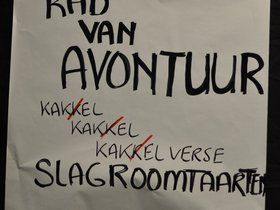 RAD
VAN
AVONTUUR
KAKKEL
KAKKEL
KAKKEL VERSE
SLAGROOMTAARTEN